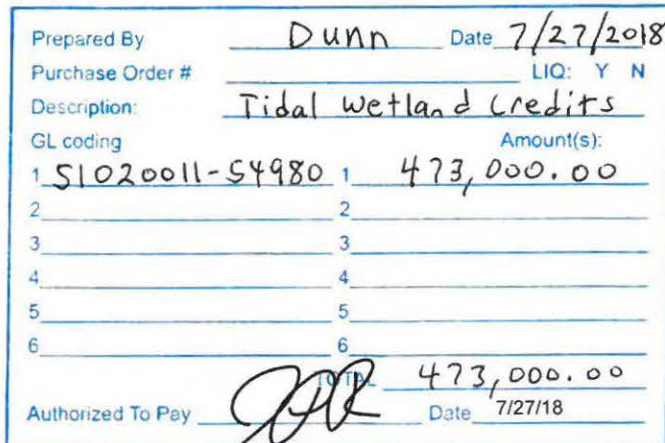 Prepared By Dunn Date 7/27/2018
Purchase Order # LIQ: Y N
Description: Tidal Wetland Credits
GL coding Amount(s):
1 51020011-54980 1 473,000.00
2 2
3 3
4 4
5 5
6 6
TOTAL 473,000.00
Authorized To Pay Date 7/27/18